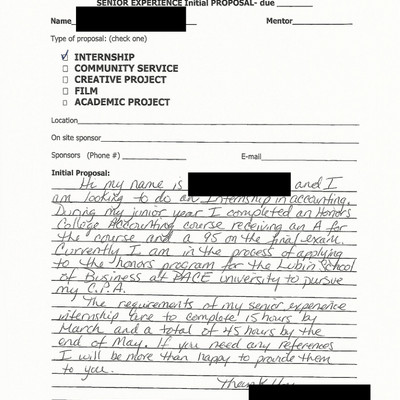 SENIOR EXPERIENCE Initial PROPOSAL- due
Name Mentor
Type of proposal: (check one)
INTERNSHIP
COMMUNITY SERVICE
CREATIVE PROJECT
FILM
ACADEMIC PROJECT
Location
On site sponsor
Sponsors (Phone #) E-mail
Initial Proposal:
Hi my name is and I
am looking to do an Internship in accounting.
During my junior year I completed an Honors
College Accounting course receiving an A for
the course and a 95 on the final exam.
Currently I am in the process of applying
to the honors program for the Lubin School
of Business at PACE university to pursue
my C.P.A.
The requirements of my senior experience
internship are to complete 15 hours by
March and a total of 45 hours by the
end of May. If you need any references
I will be more than happy to provide them
to you.
Thank You